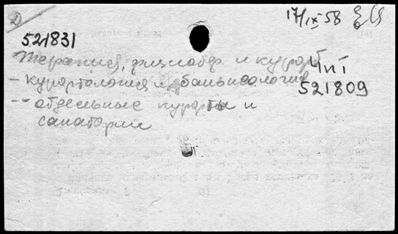 17/IX-58
521831
Терапия, физиотер. и курорт
Ч и 1
– курортология и бальнеология
521809
-- отдельные курорты и
санатории